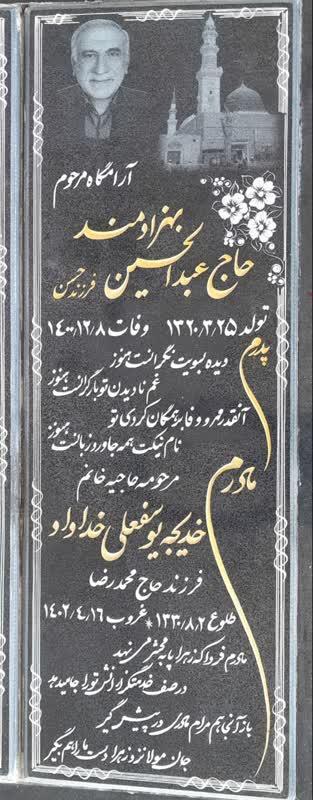 آرامگاه مرحوم
حاج عبدالحسین بهزادمند
فرزند حسن
تولد ۱۳۲۰/۳/۲۵ وفات ۱۴۰۰/۱۲/۸
پدرم
دیده بسویت نگرانست هنوز
غم نادیدن تو بار گرانست هنوز
آنقدر مهر و وفا بر همگان کردی تو
نام نیکت همه جا ورد زبانست هنوز
مادرم
مرحومه حاجیه خانم
خدیجه یوسفعلی خداداد
فرزند حاج محمدرضا
طلوع ۱۳۳۰/۸/۲ * غروب ۱۴۰۲/۴/۱۶
مادرم فردا که زهرا پا به محشر می نهد
در صف خدمتگزارانش تو را جا میدهد
باز آنی هم مرام مادری در پیش گیر
جان مولا نزد زهرا دست ما را هم بگیر